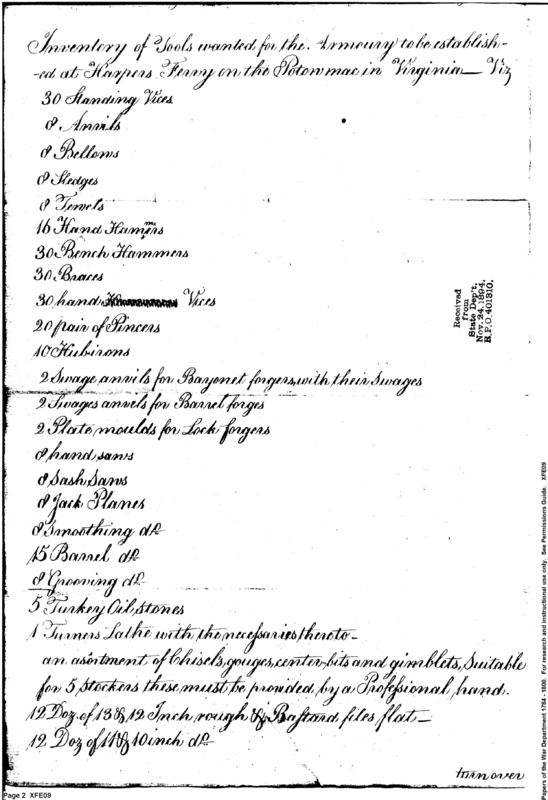 Inventory of Tools wanted for the Armoury to be establish-
-ed at Harpers Ferry on the Potowmac in Virginia — Viz
30 Standing Vices
8 Anvils
8 Bellows
8 Sledges
8 Tewels
16 Hand Hamers
30 Bench Hammers
30 Braces
30 hand Vices
20 pair of Pincers
10 Hubirons
2 Swage anvils for Bayonet forgers, with their Swages
2 Swages anvels for Barrel forges
2 Plate moulds for Lock forgers
8 hand saws
8 Sash Saws
8 Jack Planes
8 Smoothing do
15 Barrel do
8 Grooving do
5 Turkey Oil, stones
1 Turners Lathe with the necessaries thereto -
an asortment of Chisels, gouges, center-bits and gimblets, Suitable
for 5 Stockers these must be provided by a Professional hand.
12 Doz of 13 & 12 Inch, rough & Bastard files flat —
12 Doz of 11 & 10 inch do
turn over
Received
from
State Dep't,
Nov. 24, 1894,
R.P.O. 401810.
Page 2 XFE09
Papers of the War Department 1784 - 1800. For research and instructional use only. See Permissions Guide. XFE09